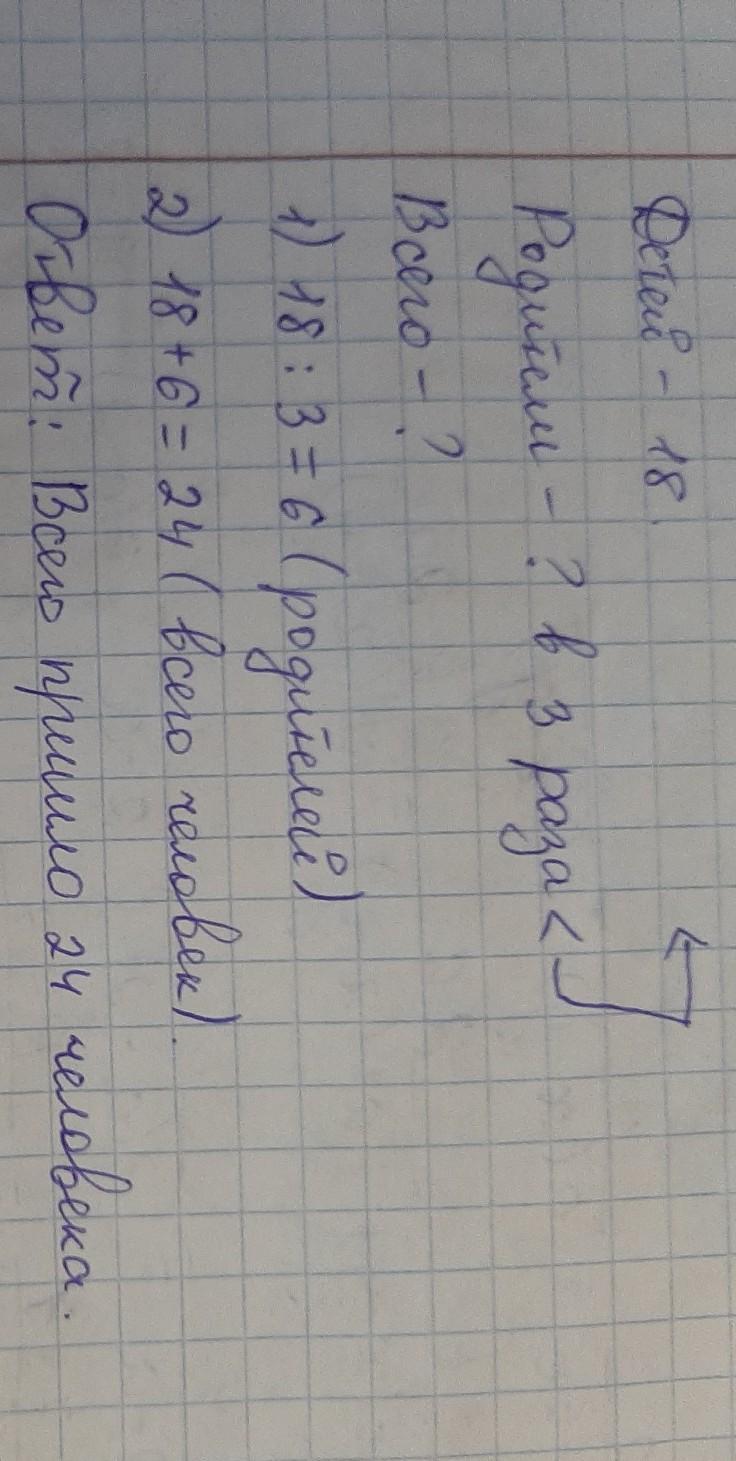 Детей - 18.
Родители - ? в 3 раза <
Всего - ?
1) 18 : 3 = 6 (родителей)
2) 18 + 6 = 24 (всего человек).
Ответ: Всего пришло 24 человека.